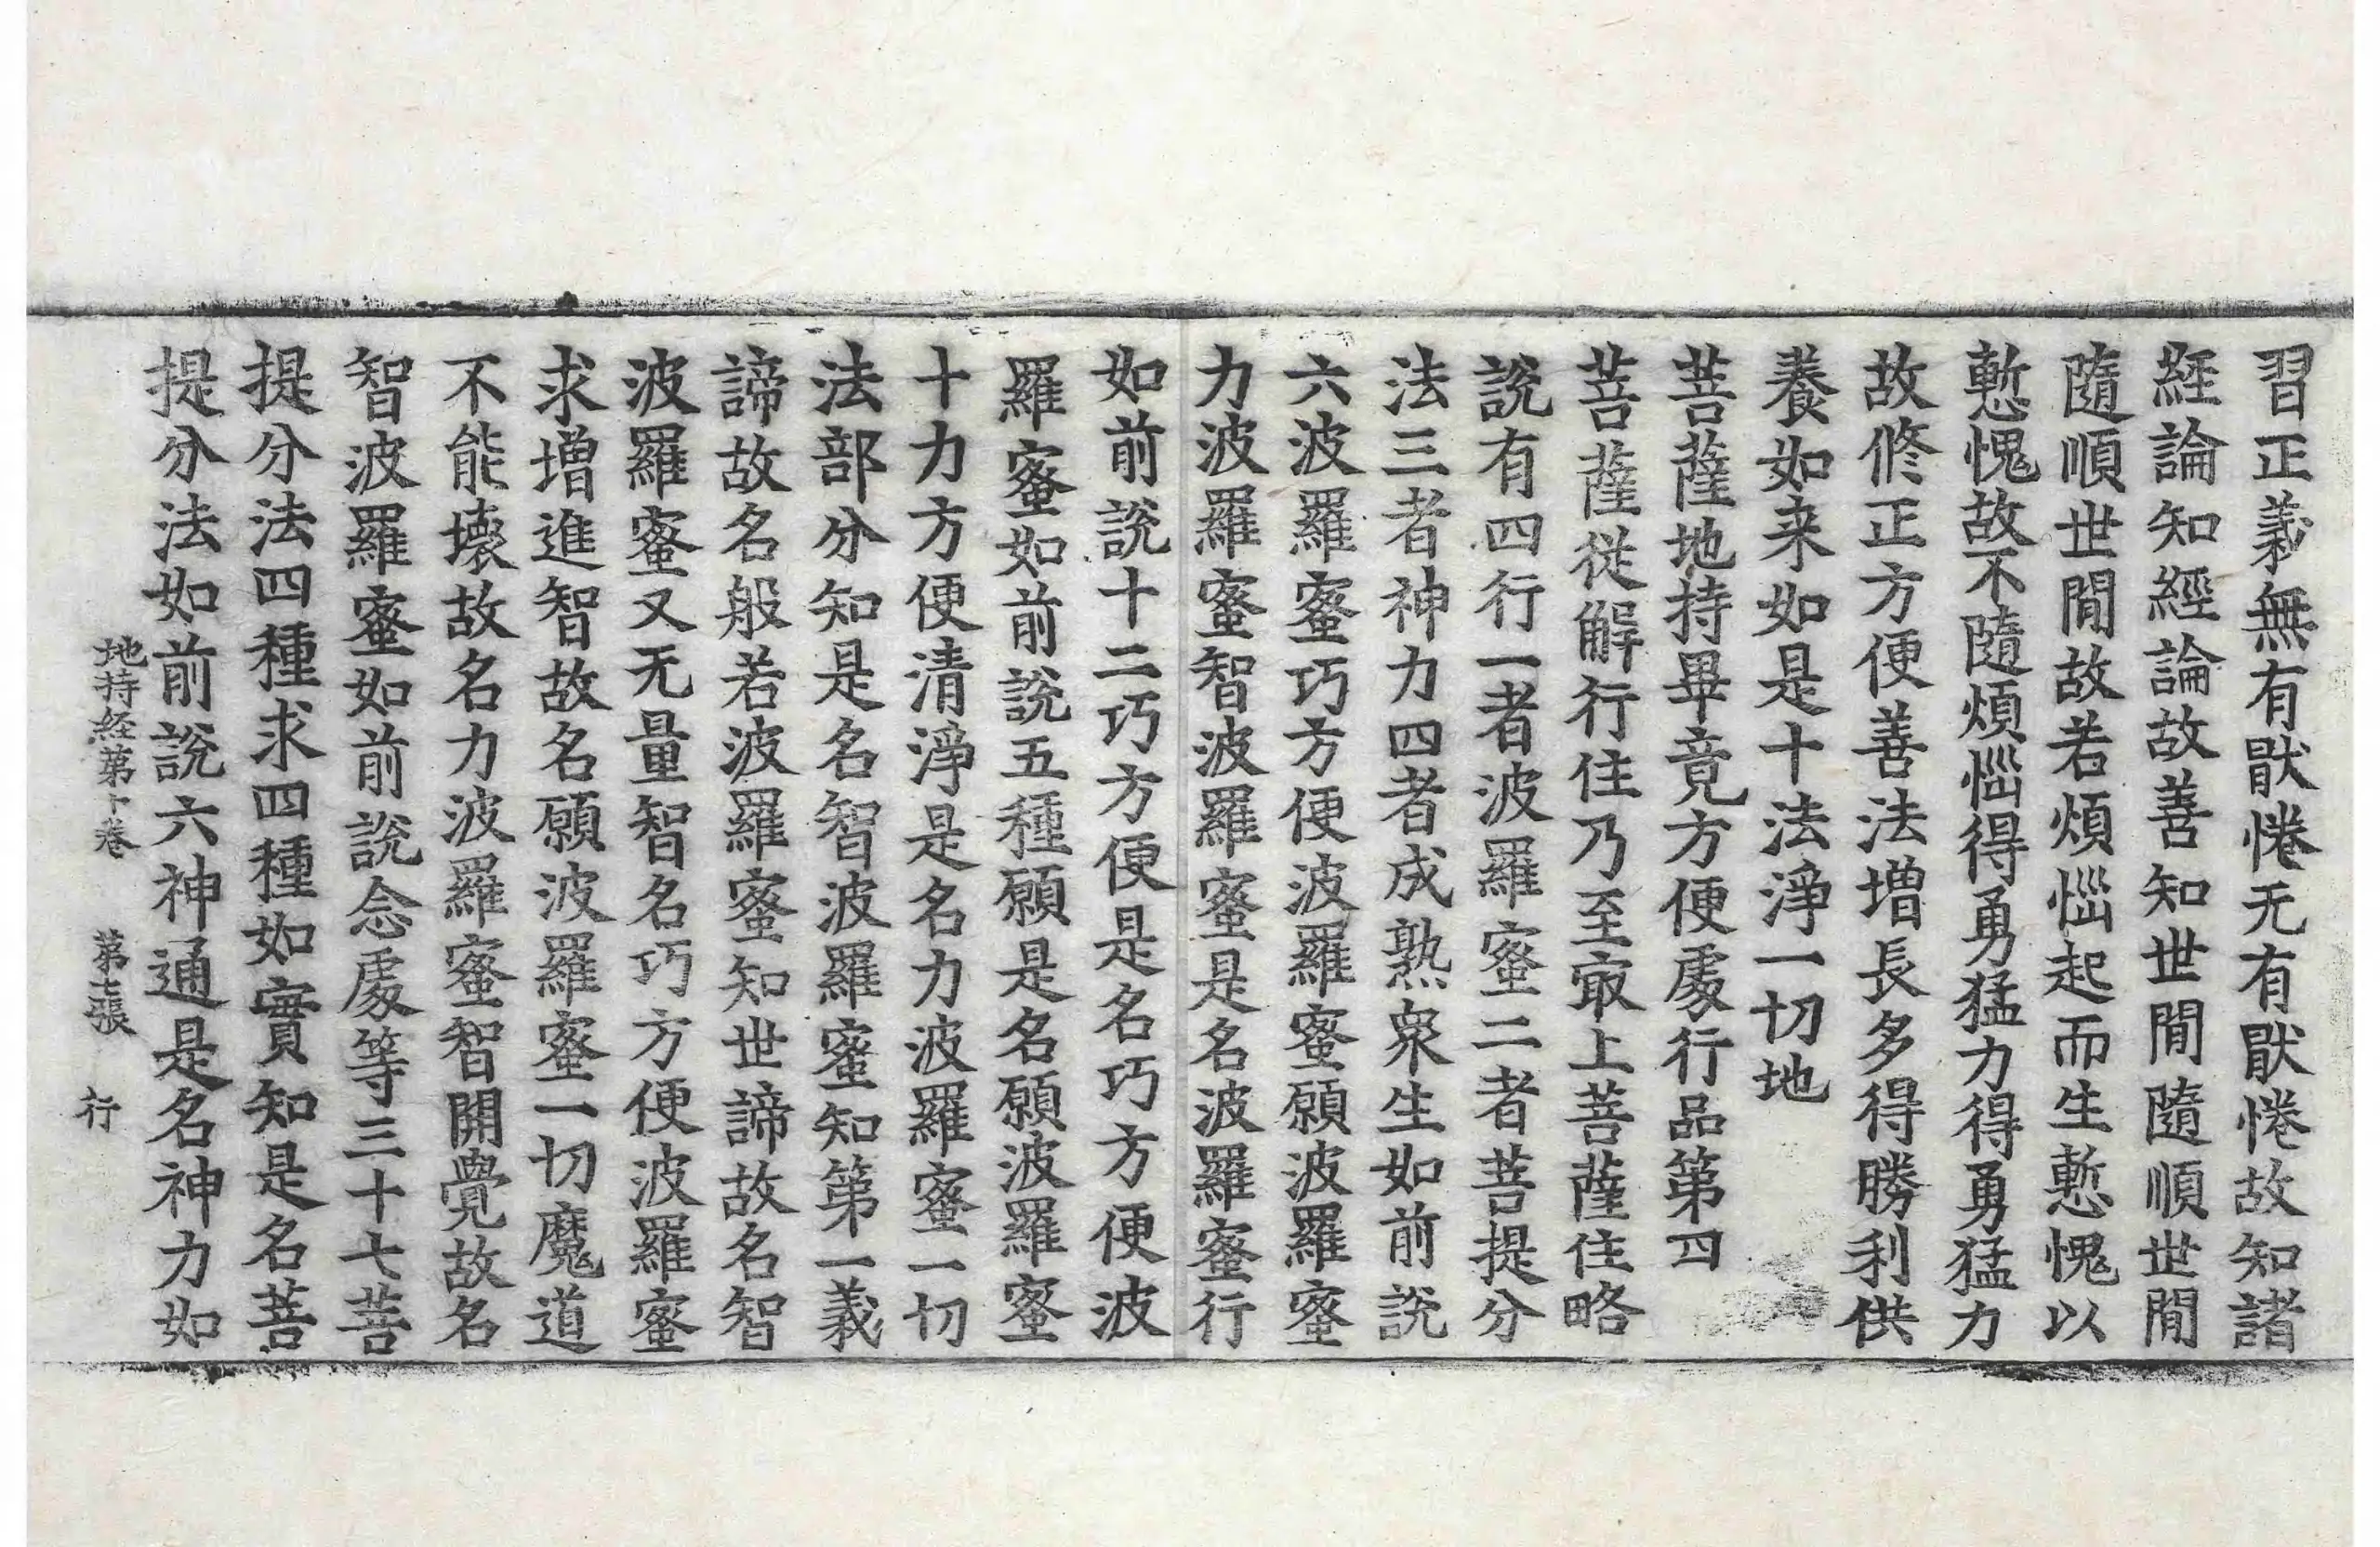 習正義無有猒惓无有猒惓故知諸
經論知經論故善知世閒隨順世閒
隨順世閒故若煩惱起而生慙愧以
慙愧故不隨煩惱得勇猛力得勇猛力
故修正方便善法增長多得勝利供
養如来如是十法淨一切地
菩薩地持畢竟方便處行品第四
菩薩從解行住乃至㝡上菩薩住略
說有四行一者波羅蜜二者菩提分
法三者神力四者成熟衆生如前說
六波羅蜜巧方便波羅蜜願波羅蜜
力波羅蜜智波羅蜜是名波羅蜜行
如前說十二巧方便是名巧方便波
羅蜜如前說五種願是名願波羅蜜
十力方便清淨是名力波羅蜜一切
法部分知是名智波羅蜜知第一義
諦故名般若波羅蜜知世諦故名智
波羅蜜又无量智名巧方便波羅蜜
求增進智故名願波羅蜜一切魔道
不能壞故名力波羅蜜智開覺故名
智波羅蜜如前說念處等三十七菩
提分法四種求四種如實知是名菩
提分法如前說六神通是名神力如
地持経第十卷 第七張 行